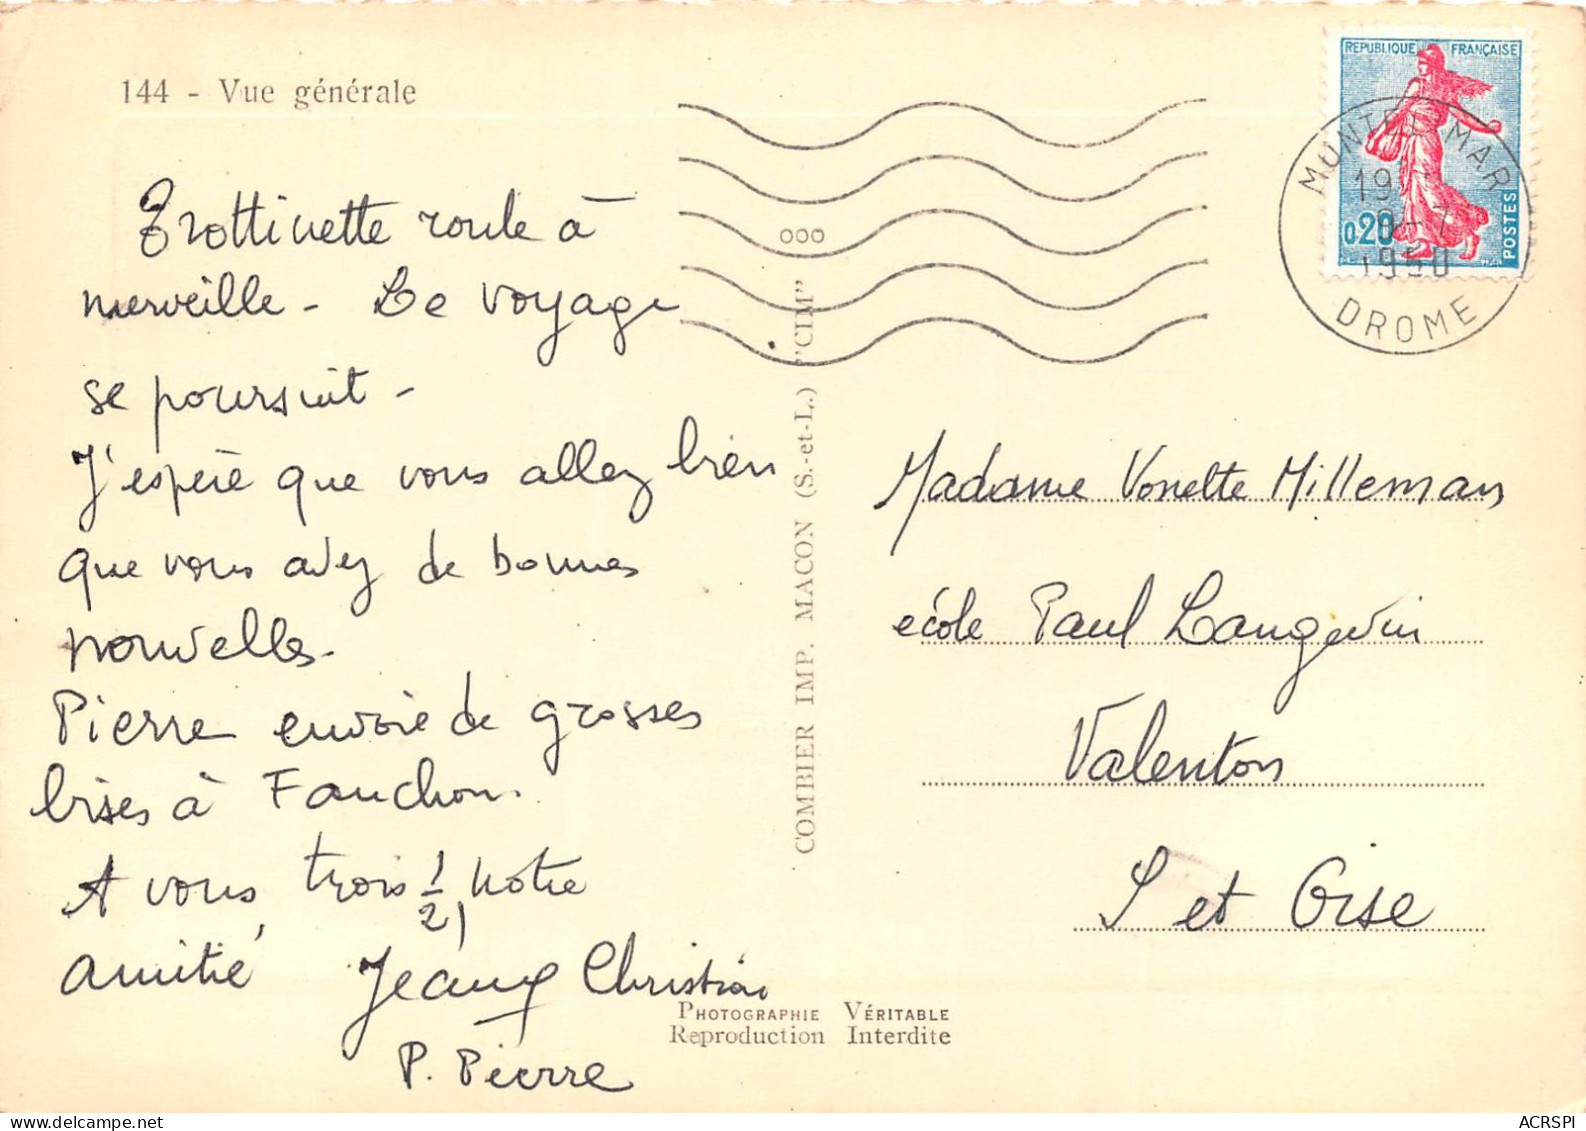 144 - Vue générale
Trottinette roule à
merveille - Le voyage
se poursuit -
J'espère que vous allez bien
que vous avez de bonnes
nouvelles.
Pierre envoie de grosses
bises à Fanchon.
A vous trois 1/2, notre
amitié
Jeany Christian
P. Pierre
COMBIER IMP. MACON (S.-et-L.) "CIM"
PHOTOGRAPHIE VÉRITABLE
Reproduction Interdite
REPUBLIQUE FRANÇAISE
0,20
POSTES
MONTELIMAR
DROME
000
Madame Vonette Milleman
école Paul Langevin
Valenton
S et Oise
ACRSPI